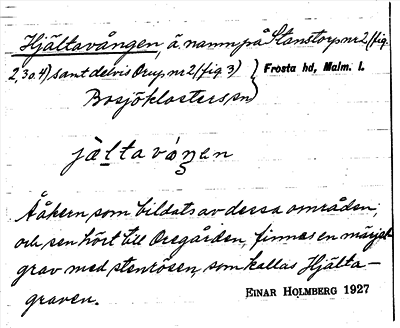 Hjältavången, ä. namn på Stanstorp nr 2 (fig.
2, 3 o. 4) samt delvis Orup nr 2 (fig 3) } Frosta hd, Malm. l.
Bosjöklosters sn
jältavåŋen
Å åkern, som bildats av dessa områden,
och sen hört till Oregården, finnes en märgel-
grav med stenrösen, som kallas Hjälta-
graven.
EINAR HOLMBERG 1927